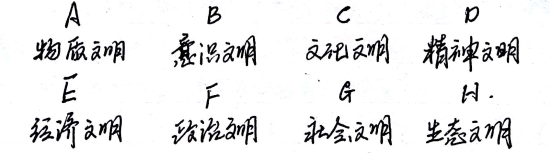 A B C D
物质文明 意识文明 文化文明 精神文明
E F G H.
经济文明 政治文明 社会文明 生态文明